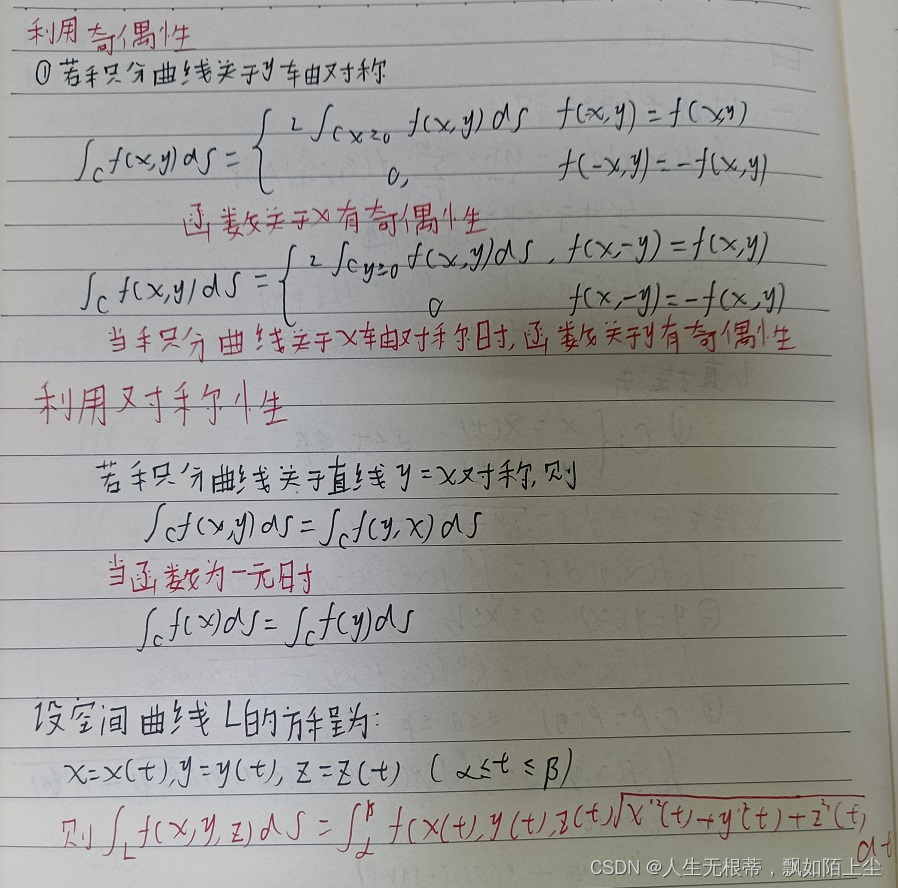 利用奇偶性
①若积分曲线关于y轴对称
∫_C f(x,y)ds = { 2∫_{C x≥0} f(x,y)ds  f(-x,y)=f(x,y)
0,  f(-x,y)=-f(x,y)
函数关于x有奇偶性
∫_C f(x,y)ds = { 2∫_{C y≥0} f(x,y)ds, f(x,-y)=f(x,y)
0  f(x,-y)=-f(x,y)
当积分曲线关于x轴对称时,函数关于y有奇偶性
利用对称性
若积分曲线关于直线y=x对称,则
∫_C f(x,y)ds=∫_C f(y,x)ds
当函数为一元时
∫_C f(x)ds=∫_C f(y)ds
设空间曲线L的方程为:
x=x(t),y=y(t),z=z(t) (α≤t≤β)
则∫_L f(x,y,z)ds=∫_α^β f(x(t),y(t),z(t)√x'²(t)+y'²(t)+z'²(t)
dt
CSDN @人生无根蒂，飘如陌上尘